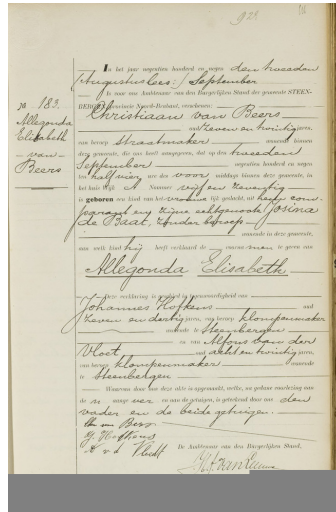 923
In het jaar negentien honderd en negen, den tweeden
(Augustus lees:) September
is voor ons Ambtenaar van den Burgerlijken Stand der gemeente STEEN-
BERGEN, provincie Noord-Brabant, verschenen:
No 183.
Allegonda
Elisabeth
- van -
Beers
Christiaan van Beers
oud zeven en twintig jaren,
van beroep straatmaker wonende binnen
deze gemeente, die ons heeft aangegeven, dat op den tweeden
September negentien honderd en negen
ten half vier ure des voor middags binnen deze gemeente, in
het huis Wijk A Nummer vijf en zeventig
is geboren een kind van het vrouwelijk geslacht, uit hem com-
parant en zijne echtgenoote Josina
de Baat, zonder beroep
wonende in deze gemeente,
aan welk kind hij heeft verklaard de voornamen te geven van
Allegonda Elisabeth
Deze verklaring is geschied in tegenwoordigheid van
Johannes Hofkens oud
zeven en dertig jaren, van beroep klompenmaker
wonende te Steenbergen
en van Alfons van der
Vloet oud acht en twintig jaren,
van beroep klompenmaker wonende
te Steenbergen
Waarvan door ons deze akte is opgemaakt, welke, na gedane voorlezing aan
de aangever en aan de getuigen, is geteekend door ons den
vader en de beide getuigen.
De Ambtenaar van den Burgerlijken Stand,